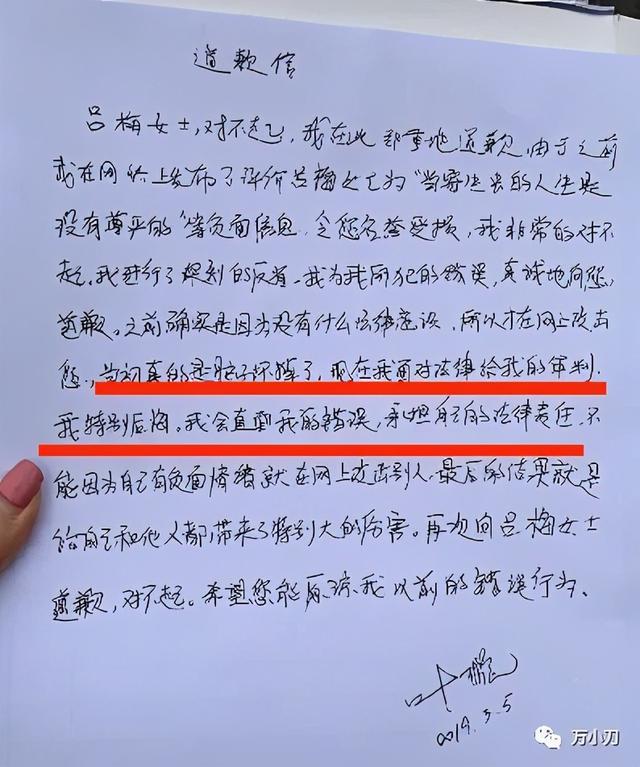 道歉信
吕梅女士,对不起,我在此郑重地道歉,由于之前
我在网络上发布了评价吕梅女士为“当寄生虫的人生是
没有尊严的”等负面信息,令您名誉受损,我非常的对不
起。我进行了深刻的反省,我为我所犯的错误,真诚地向您
道歉。之前确实是因为没有什么法律意识,所以才在网上攻击
您,当初真的是脑子坏掉了,现在我面对法律给我的审判,
我特别后悔。我会直面我的错误,承担自己的法律责任,不
能因为自己有负面情绪就在网上攻击别人,最后的结果就是
给自己和他人都带来了特别大的伤害。再次向吕梅女士
道歉,对不起。希望您能原谅我以前的错误行为。
叶
2019.5.5
万小刀